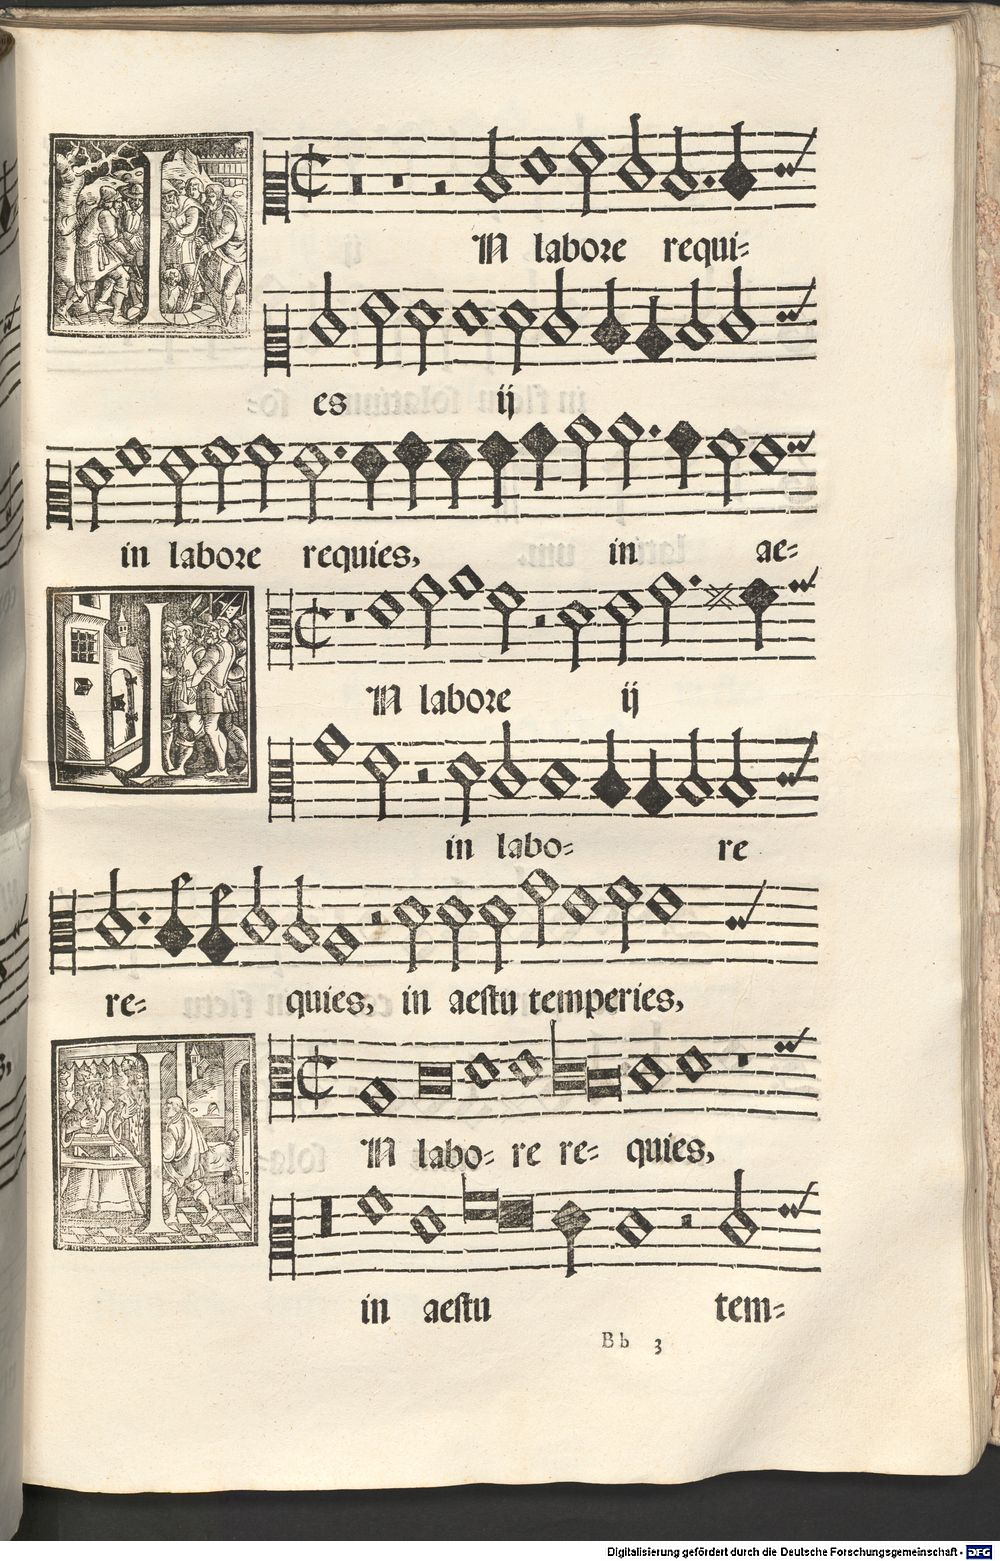 IN labore requi=
es ij
in labore requies, in ae=
IN labore ij
in labo= re
re= quies, in aestu temperies,
IN labo= re re= quies,
in aestu tem=
Bb 3
Digitalisierung gefördert durch die Deutsche Forschungsgemeinschaft - DFG